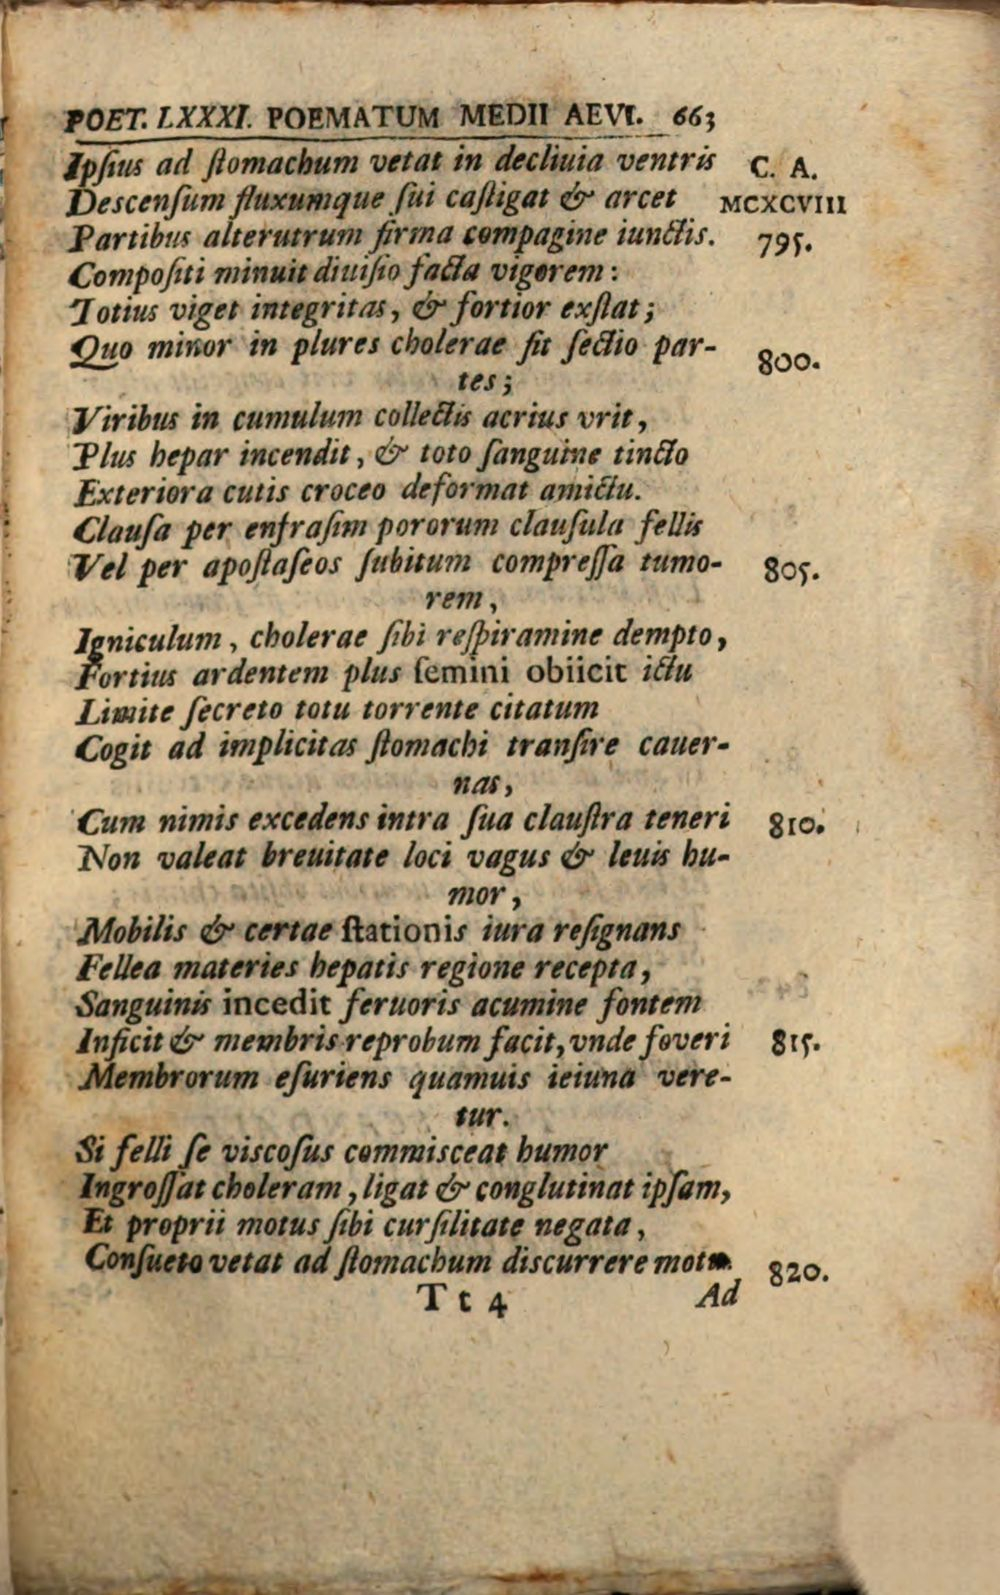 POET. LXXXI. POEMATUM MEDII AEVI. 663
Ipſius ad ſtomachum vetat in decliuia ventris C. A.
Deſcenſum fluxumque ſui caſtigat & arcet MCXCVIII
Partibus alterutrum firma compagine iunctis. 795.
Compoſiti minuit diuiſio facta vigorem:
Totius viget integritas, & fortior exſtat;
Quo minor in plures cholerae fit ſectio par- 800.
tes;
Viribus in cumulum collectis acrius vrit,
Plus hepar incendit, & toto ſanguine tincto
Exteriora cutis croceo deformat amictu.
Clauſa per enfraſim pororum clauſula fellis
Vel per apoſtaſeos ſubitum compreſſa tumo- 805.
rem,
Igniculum, cholerae ſibi reſpiramine dempto,
Fortius ardentem plus ſemini obiicit ictu
Limite ſecreto totu torrente citatum
Cogit ad implicitas ſtomachi tranſire cauer-
nas,
Cum nimis excedens intra ſua clauſtra teneri 810.
Non valeat breuitate loci vagus & leuis hu-
mor,
Mobilis & certae ſtationis iura reſignans
Fellea materies hepatis regione recepta,
Sanguinis incedit feruoris acumine fontem
Inficit & membris reprobum facit, vnde foveri 815.
Membrorum eſuriens quamuis ieiuna vere-
tur.
Si felli ſe viscoſus commisceat humor
Ingroſſat choleram, ligat & conglutinat ipſam,
Et proprii motus ſibi curſilitate negata,
Conſueto vetat ad ſtomachum discurrere motu. 820.
Tt 4 Ad